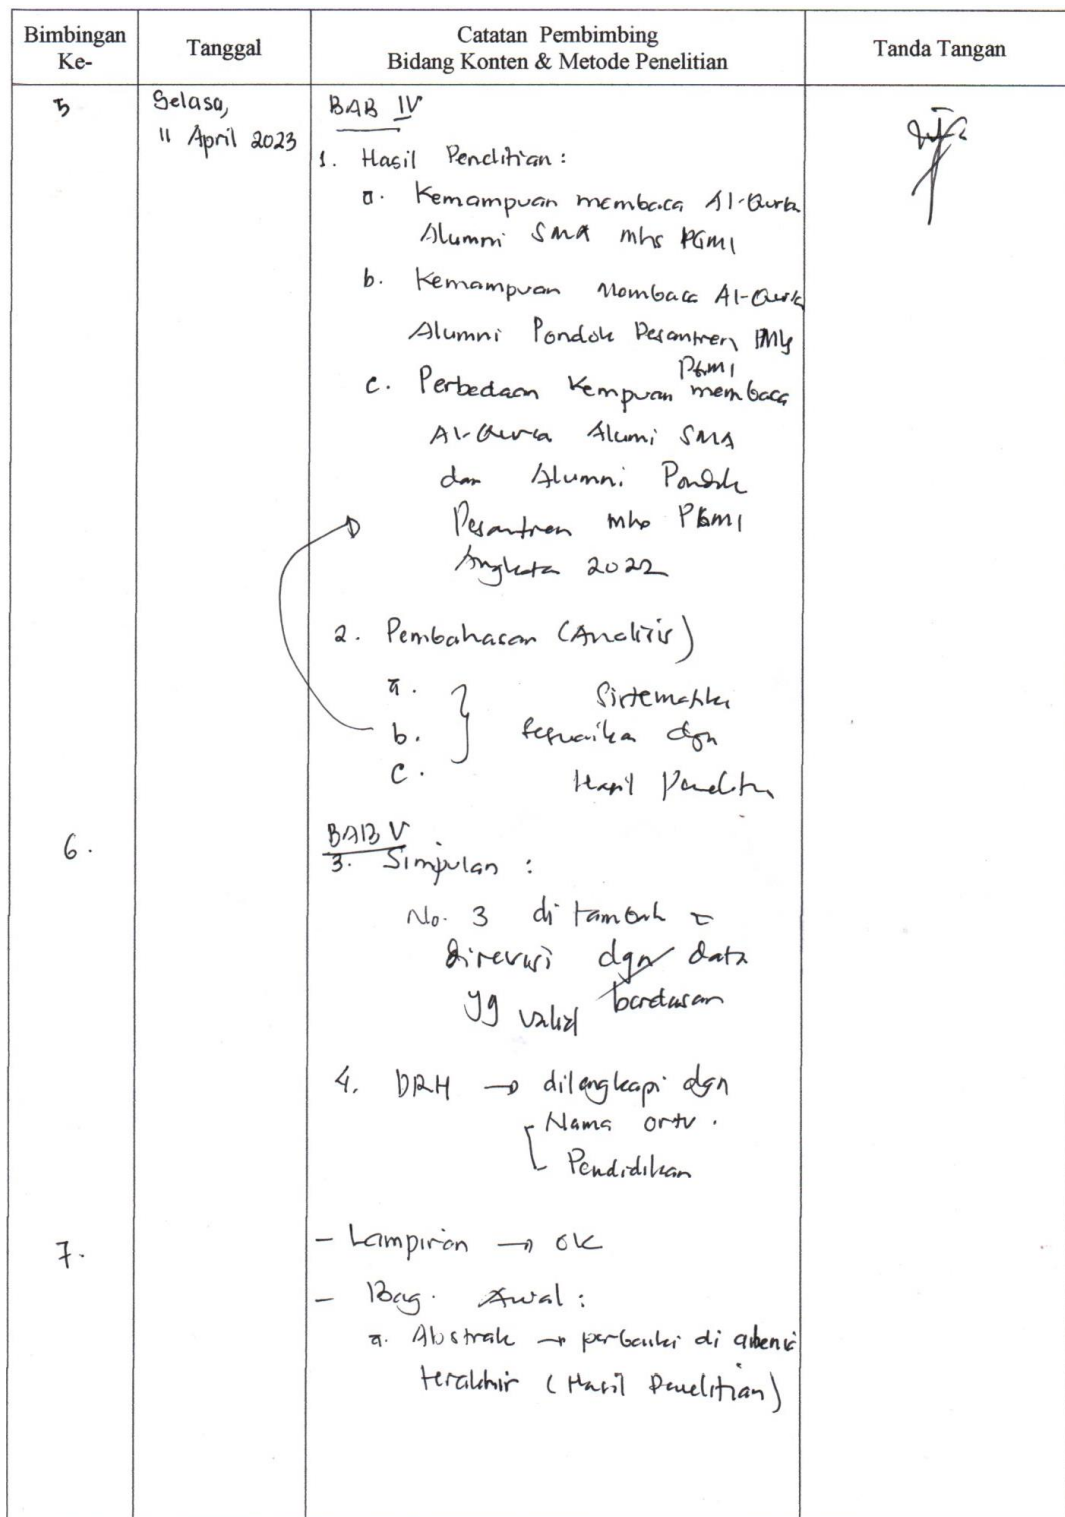 Bimbingan Ke-
Tanggal
Catatan Pembimbing
Bidang Konten & Metode Penelitian
Tanda Tangan
5
Selasa,
11 April 2023
BAB IV
1. Hasil Penelitian :
a. Kemampuan membaca Al-Quran
Alumni SMA mhs PGMI
b. Kemampuan Membaca Al-Quran
Alumni Pondok Pesantren Mhs
PGMI
c. Perbedaan Kempuan membaca
Al-Quran Alumi SMA
dan Alumni Pondok
Pesantren mhs PGMI
Angkata 2022
2. Pembahasan (Analisis)
a.
b.
c.
Sistematika
sesuaikan dgn
Hasil Penelitn
6.
BAB V
3. Simpulan :
No. 3 di tambah
direvisi dgn data
yg valid berdasan
4. DRH → dilengkapi dgn
Nama ortu.
Pendidikan
7.
- Lampiran → OK
- Bag. Awal :
a. Abstrak → perbaiki di
terakhir (Hasil Penelitian)